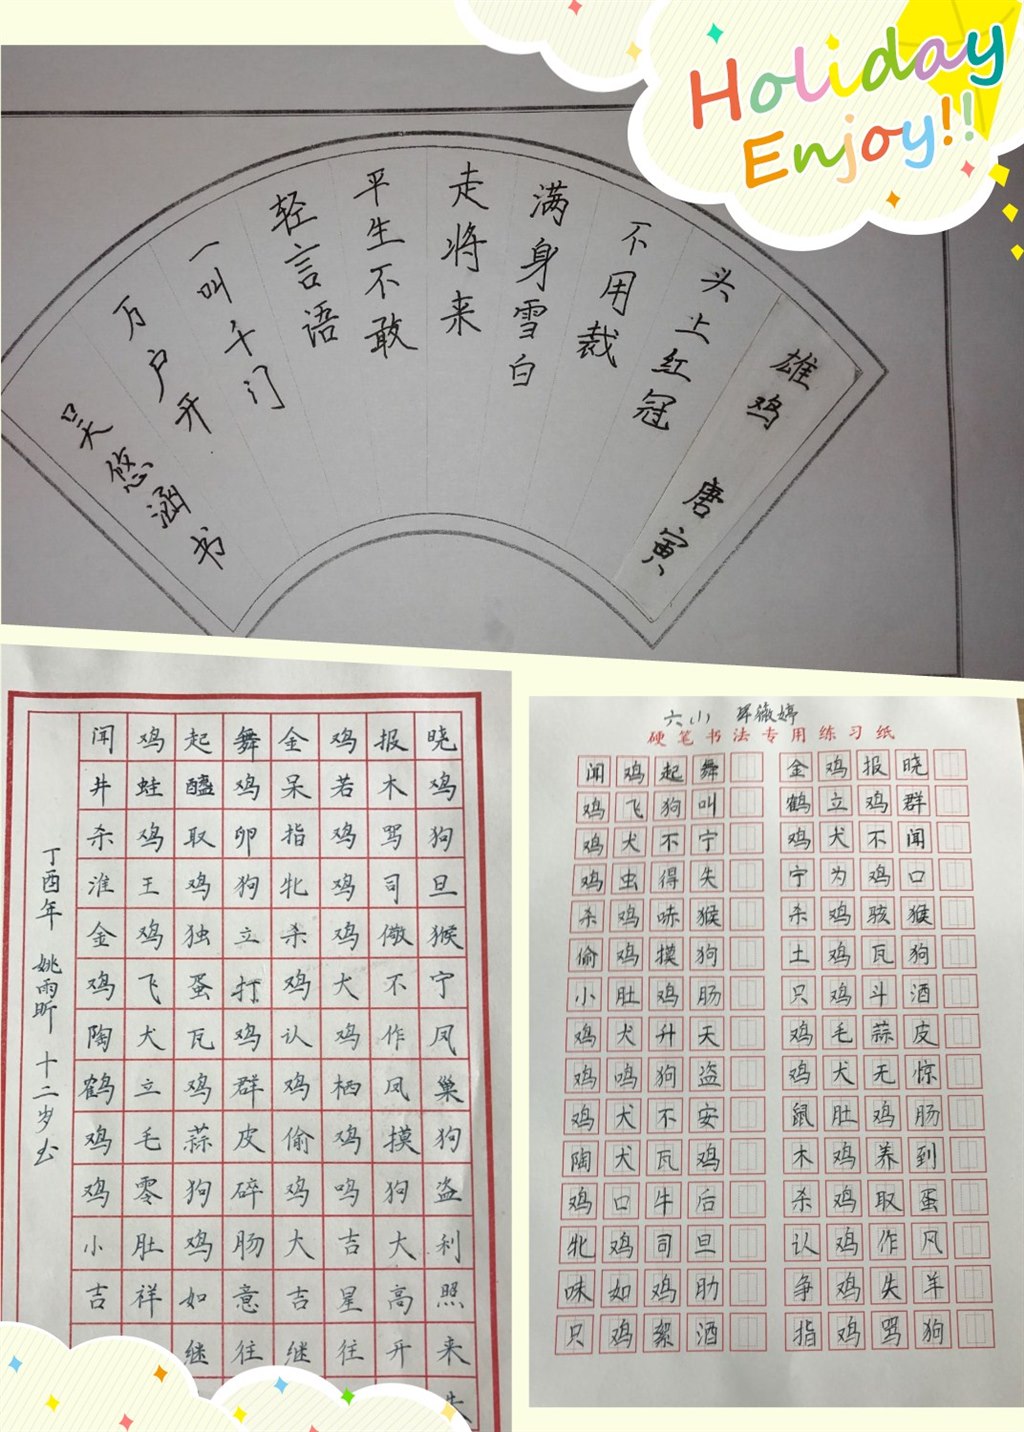 Holiday
Enjoy!!
雄鸡 唐寅
头上红冠
不用裁
满身雪白
走将来
平生不敢
轻言语
一叫千门
万户开
吴悠涵书
闻鸡起舞金鸡报晓
井蛙醯鸡呆若木鸡
杀鸡取卵指鸡骂狗
淮王鸡狗牝鸡司旦
金鸡独立杀鸡儆猴
鸡飞蛋打鸡犬不宁
陶犬瓦鸡认鸡作凤
鹤立鸡群鸡栖凤巢
鸡毛蒜皮偷鸡摸狗
鸡零狗碎鸡鸣狗盗
小肚鸡肠大吉大利
吉祥如意吉星高照
继往继往开来
丁酉年 姚雨昕 十二岁书
六(1)
硬笔书法专用练习纸
闻鸡起舞 金鸡报晓
鸡飞狗叫 鹤立鸡群
鸡犬不宁 鸡犬不闻
鸡虫得失 宁为鸡口
杀鸡哧猴 杀鸡骇猴
偷鸡摸狗 土鸡瓦狗
小肚鸡肠 只鸡斗酒
鸡犬升天 鸡毛蒜皮
鸡鸣狗盗 鸡犬无惊
鸡犬不安 鼠肚鸡肠
陶犬瓦鸡 木鸡养到
鸡口牛后 杀鸡取蛋
牝鸡司旦 认鸡作凤
味如鸡肋 争鸡失羊
只鸡絮酒 指鸡骂狗